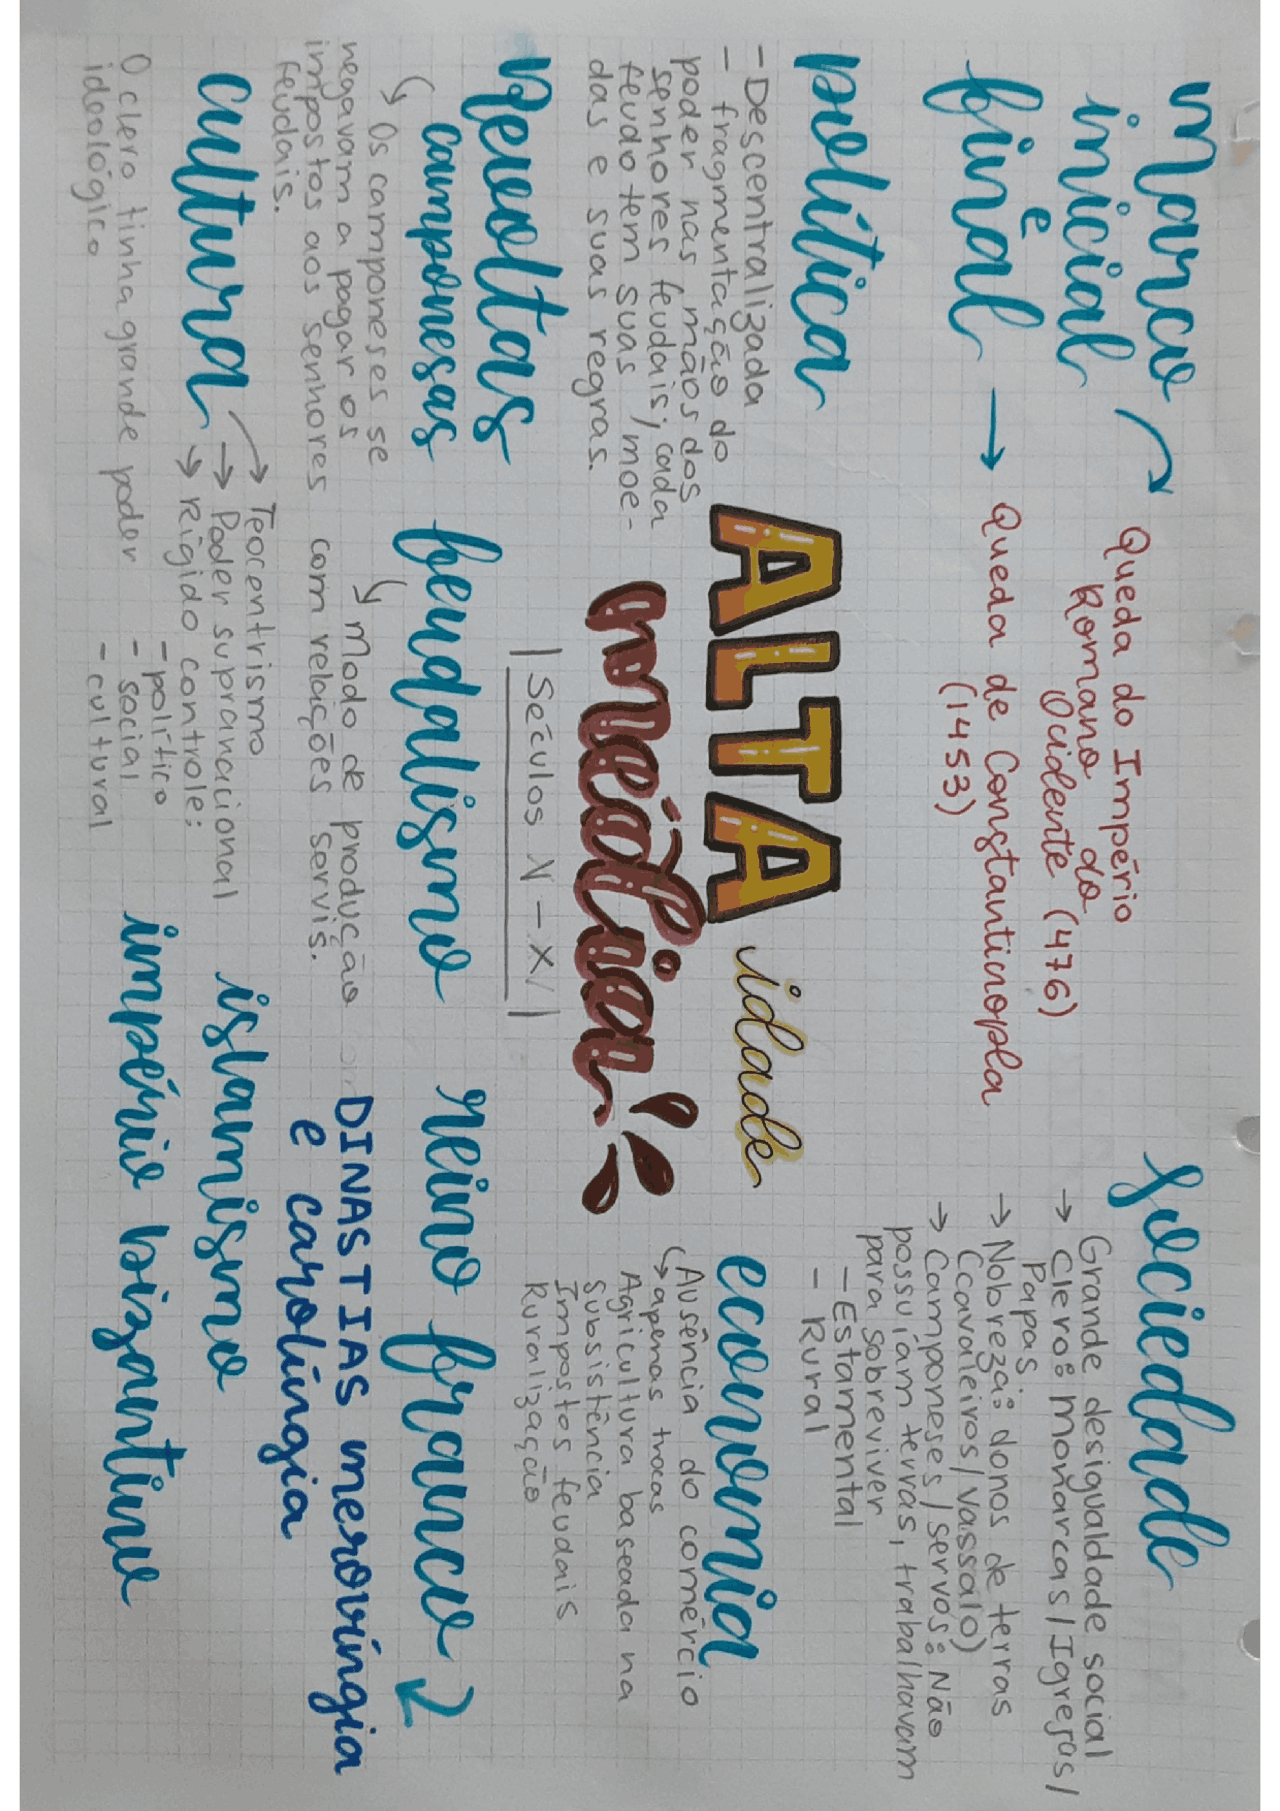 marco
inicial
e
final
Queda do Império
Romano do
Ocidente (476)
Queda de Constantinopla
(1453)
sociedade
→ Grande desigualdade social
→ Clero: monarcas/Igrejas/
Papas
→ Nobreza: donos de terras
(cavaleiros/vassalo)
→ Camponeses/servos: Não
possuíam terras, trabalhavam
para sobreviver
- Estamental
- Rural
política
- Descentralizada
- fragmentação do
poder nas mãos dos
senhores feudais; cada
feudo tem suas moe-
das e suas regras.
ALTA idade
média
| Séculos V - XV |
economia
Ausência do comércio
↳ apenas trocas
Agricultura baseada na
subsistência
Impostos feudais
Ruralização
Revoltas
camponesas
↳ Os camponeses se
negavam a pagar os
impostos aos senhores
feudais.
feudalismo
↳ modo de produção
com relações servis.
reino franco
DINASTIAS merovíngia
e carolíngia
cultura
→ Teocentrismo
→ Poder supranacional
→ Rígido controle:
- político
- social
- cultural
O clero tinha grande poder
ideológico
islamismo
império bizantino